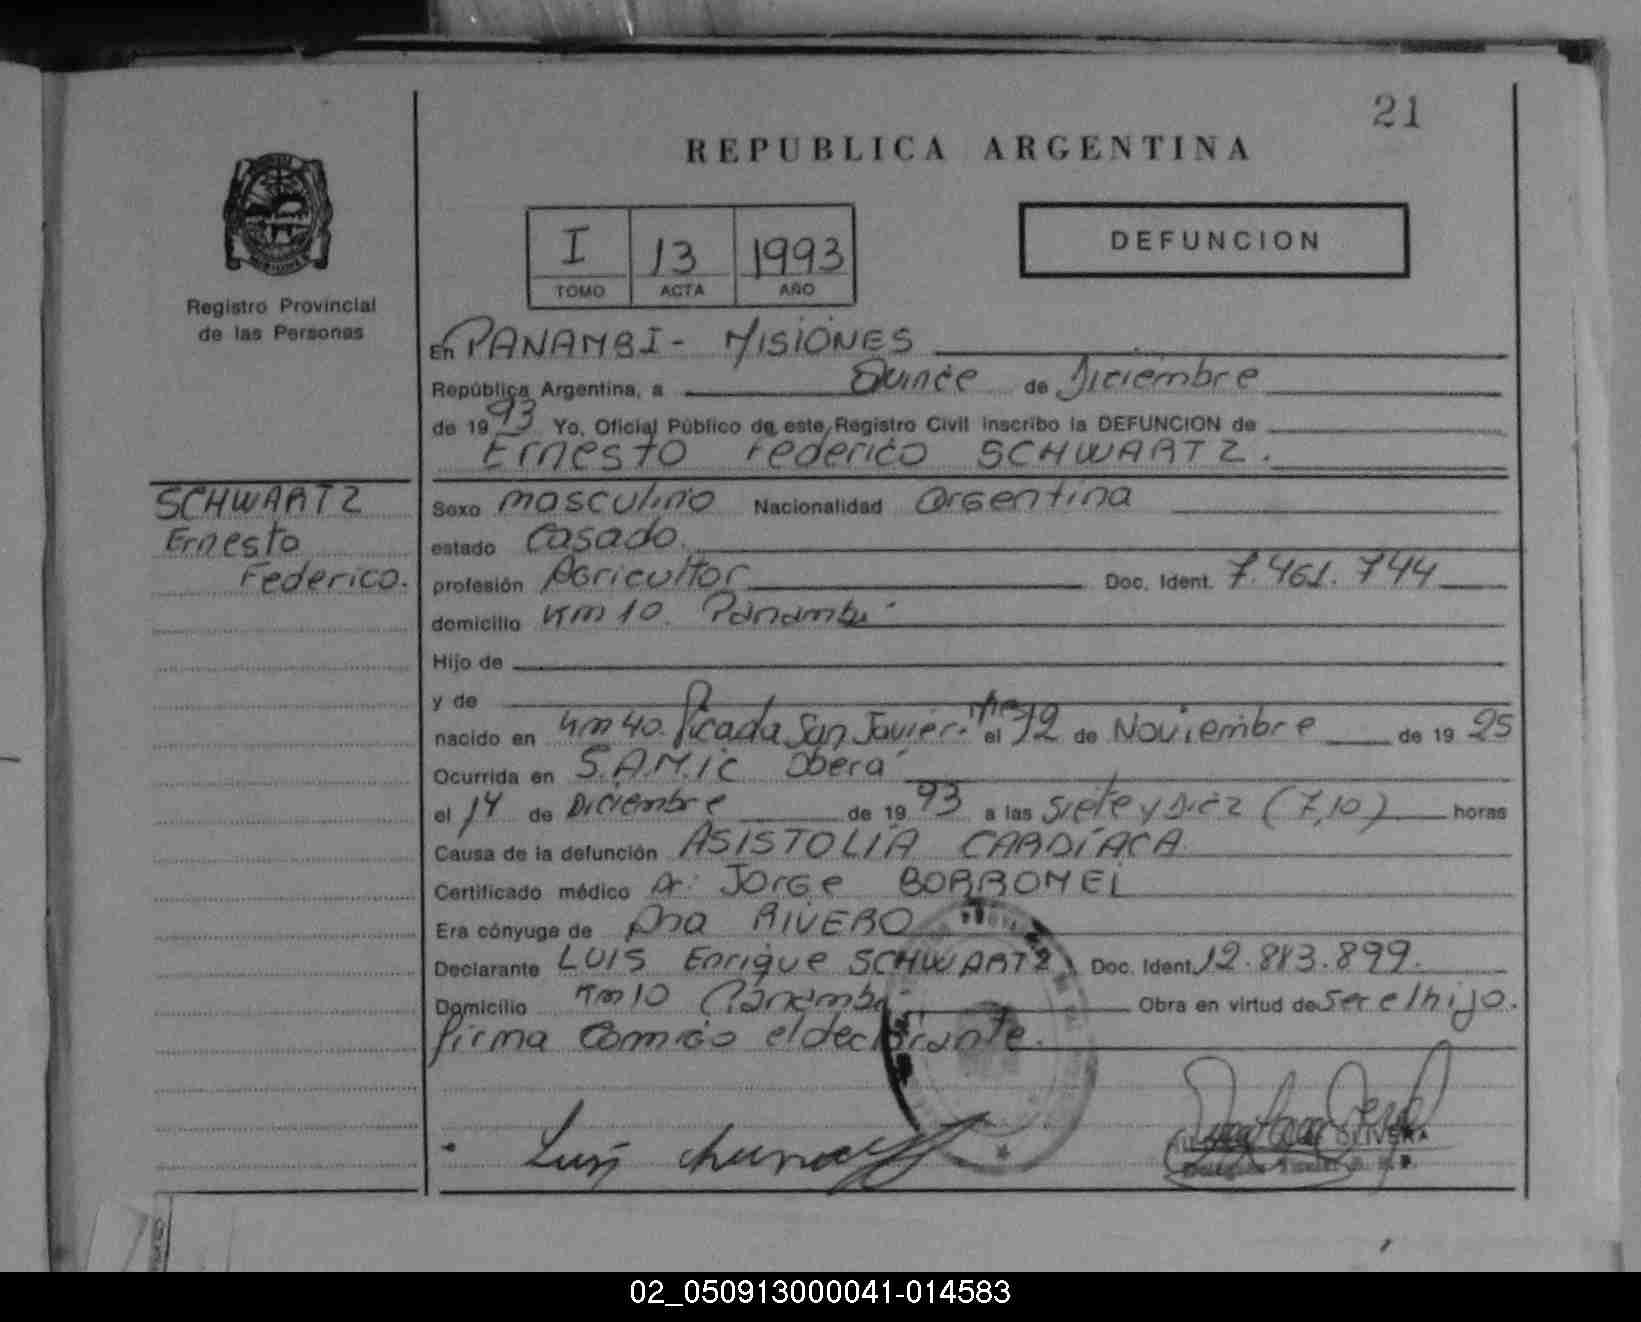 21
REPUBLICA ARGENTINA
I 13 1993
TOMO ACTA AÑO
DEFUNCION
Registro Provincial
de las Personas
En PANAMBI - MISIONES
República Argentina, a Quince de Diciembre
de 1993 Yo, Oficial Público de este Registro Civil inscribo la DEFUNCION de
Ernesto Federico SCHWARTZ.
SCHWARTZ
Ernesto
Federico.
Sexo masculino Nacionalidad argentina
estado Casado.
profesión Agricultor Doc. Ident. 7.461.744
domicilio Km 10. Panambi
Hijo de
y de
nacido en Km 40. Picada San Javier. Mnes el 12 de Noviembre de 19 25
Ocurrida en S.A.M.ic Oberá
el 14 de Diciembre de 19 93 a las siete y diez (7,10) horas
Causa de la defunción ASISTOLIA CARDÍACA
Certificado médico Dr. Jorge BORROMEI
Era cónyuge de Ana RIVERO
Declarante LUIS Enrique SCHWARTZ Doc. Ident. 12.883.899.
Domicilio Km 10 Panambi Obra en virtud de Ser el hijo.
firma Conmigo el declarante.
Luis
OLIVERA
02_050913000041-014583